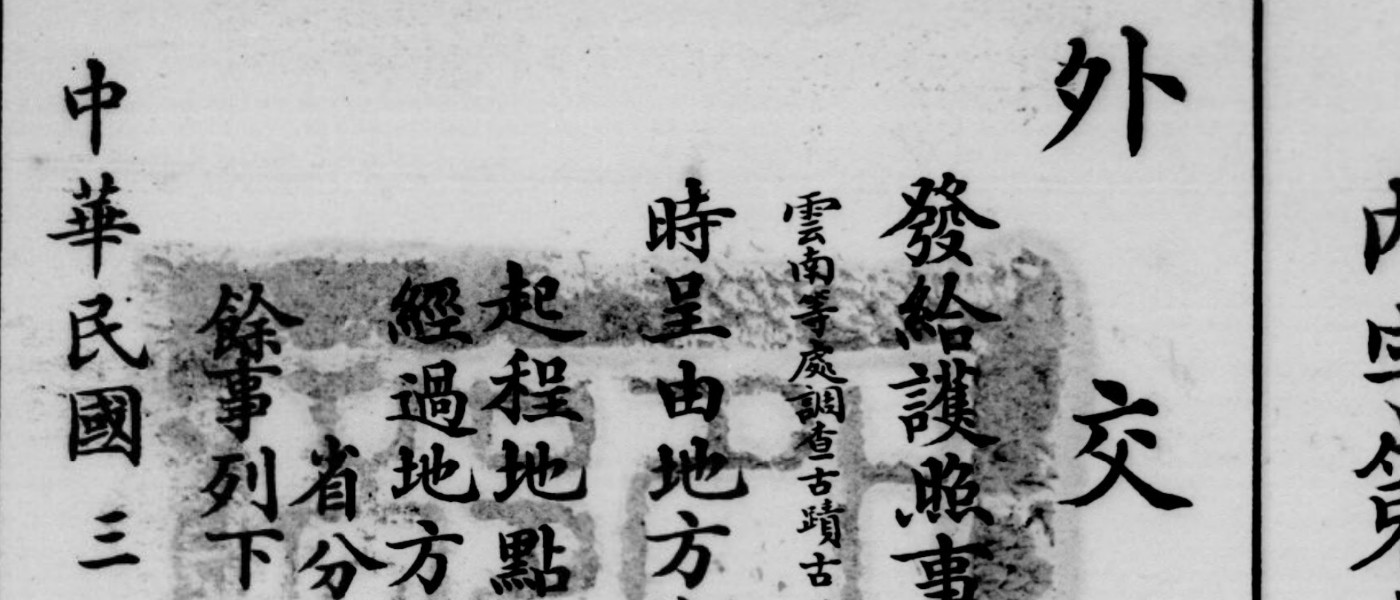 外交
發給護照事
雲南等處調查古蹟古
時呈由地方
起程地點
經過地方
省分
餘事列下
中華民國三